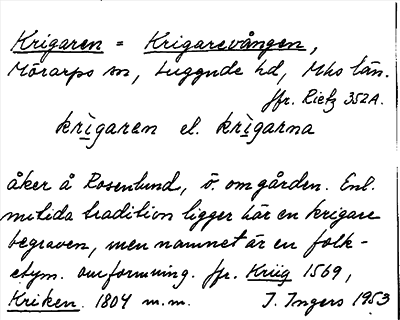 Krigaren = Krigarevången,
Mörarps sn, Luggude hd, Mhs län.
Jfr. Rietz 352A.
krigaren el. krigarna
åker å Rosenlund, ö. om gården. Enl.
nutida tradition ligger här en krigare
begraven, men namnet är en folk-
etym. omformning. Jfr. Kriig 1569,
Kriken 1804 m.m. J. Ingers 1953